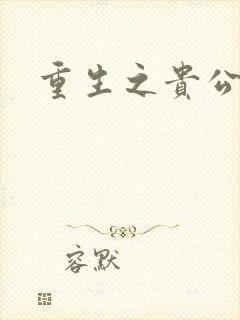 重生之貴公
容默